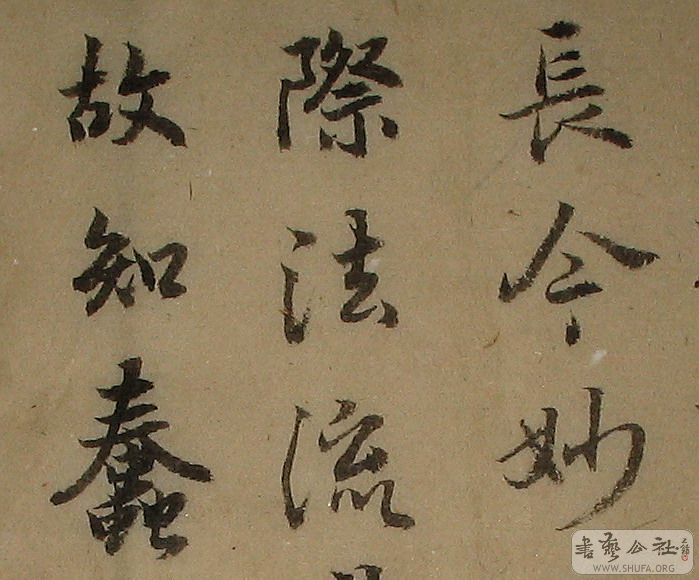 長今妙
際法流
故知蠢
書藝公社
WWW.SHUFA.ORG